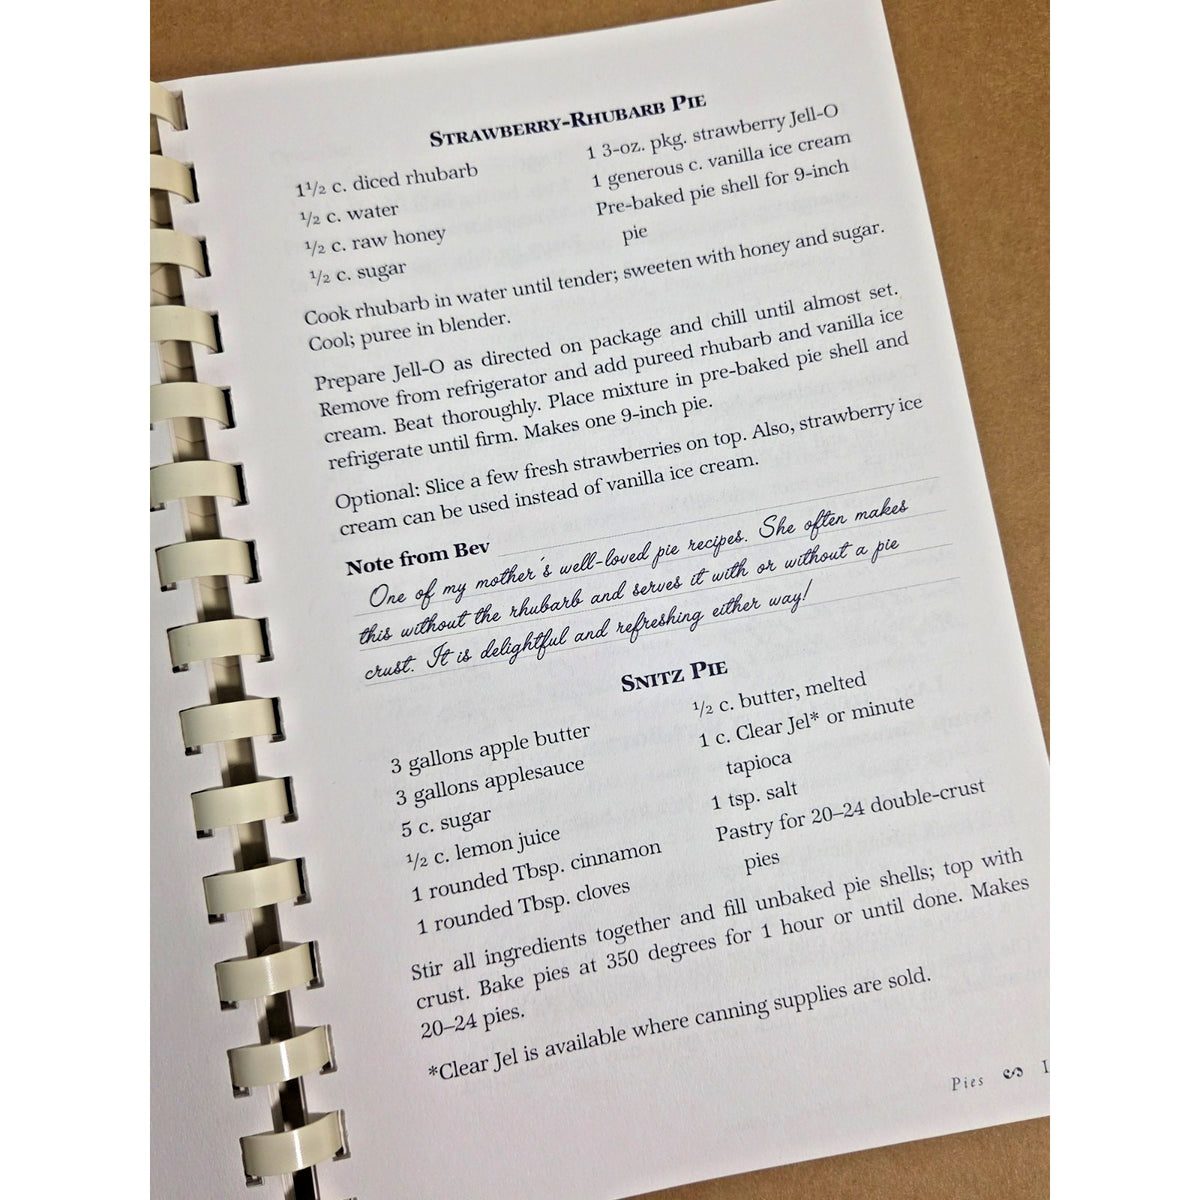 STRAWBERRY-RHUBARB PIE
1½ c. diced rhubarb
½ c. water
½ c. raw honey
½ c. sugar
1 3-oz. pkg. strawberry Jell-O
1 generous c. vanilla ice cream
Pre-baked pie shell for 9-inch
pie
Cook rhubarb in water until tender; sweeten with honey and sugar.
Cool; puree in blender.
Prepare Jell-O as directed on package and chill until almost set.
Remove from refrigerator and add pureed rhubarb and vanilla ice
cream. Beat thoroughly. Place mixture in pre-baked pie shell and
refrigerate until firm. Makes one 9-inch pie.
Optional: Slice a few fresh strawberries on top. Also, strawberry ice
cream can be used instead of vanilla ice cream.
Note from Bev
One of my mother's well-loved pie recipes. She often makes
this without the rhubarb and serves it with or without a pie
crust. It is delightful and refreshing either way!
SNITZ PIE
3 gallons apple butter
3 gallons applesauce
5 c. sugar
½ c. lemon juice
1 rounded Tbsp. cinnamon
1 rounded Tbsp. cloves
½ c. butter, melted
1 c. Clear Jel* or minute
tapioca
1 tsp. salt
Pastry for 20–24 double-crust
pies
Stir all ingredients together and fill unbaked pie shells; top with
crust. Bake pies at 350 degrees for 1 hour or until done. Makes
20–24 pies.
*Clear Jel is available where canning supplies are sold.
Pies